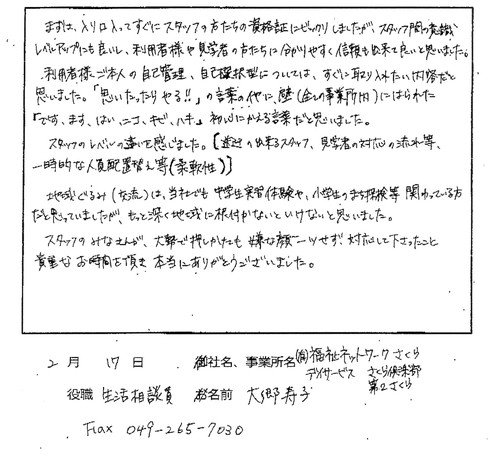 まずは、入り口入ってすぐにスタッフの方たちの資格証にビックリしましたが、スタッフ間の意識
レベルアップにも良いし、利用者様や見学者の方たちに分かりやすく信頼も出来て良いと思いました。
利用者様ご本人の自己管理、自己選択型については、すぐに取り入れたい内容だと
思いました。「思いたったらやる!!」の言葉の他に、壁(全ての事業所内)にはられた
『です、ます、はい、ニコ、キビ、ハキ』初心にかえる言葉だと思いました。
スタッフのレベルの違いを感じました。【送迎の出来るスタッフ、見学者の対応の流れ等、
一時的な人員配置替え等(柔軟性)】
地域ぐるみ(交流)は、当社でも中学生実習体験や、小学生のまち探検等 関わっている方
だと思っていましたが、もっと深く地域に根付かないといけないと思いました。
スタッフのみなさんが、大勢で押しかけても嫌な顔一ツせず対応して下さったこと
貴重なお時間を頂き本当にありがとうございました。
2月 17日 御社名、事業所名 (有)福祉ネットワークさくら
デイサービス さくら倶楽部
第2さくら
役職 生活相談員 お名前 大郷寿子
Fax 049-265-7030